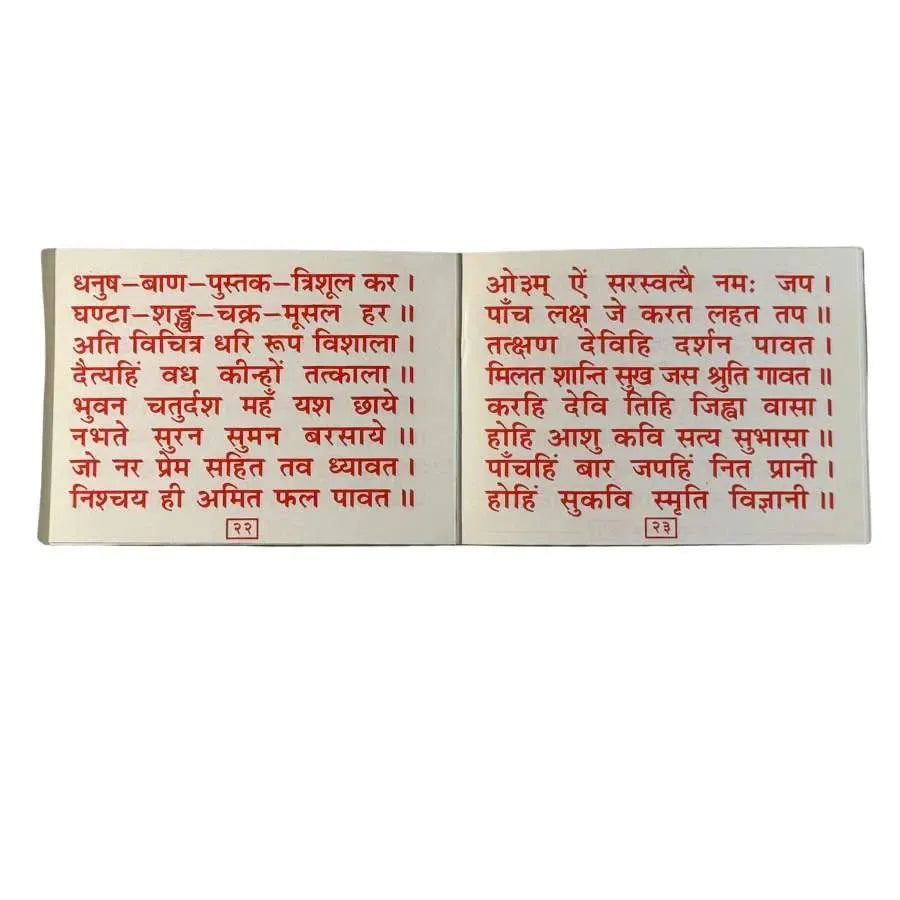 धनुष–बाण–पुस्तक–त्रिशूल कर ।
घण्टा–शङ्ख–चक्र–मूसल हर ॥
अति विचित्र धरि रूप विशाला ।
दैत्यहिं वध कीन्हों तत्काला ॥
भुवन चतुर्दश महँ यश छाये ।
नभते सुरन सुमन बरसाये ॥
जो नर प्रेम सहित तव ध्यावत ।
निश्चय ही अमित फल पावत ॥
२२
ओ३म् ऐं सरस्वत्यै नमः जप ।
पाँच लक्ष जे करत लहत तप ॥
तत्क्षण देविहि दर्शन पावत ।
मिलत शान्ति सुख जस श्रुति गावत ॥
करहि देवि तिहि जिह्वा वासा ।
होहि आशु कवि सत्य सुभासा ॥
पाँचहिं बार जपहिं नित प्रानी ।
होहिं सुकवि स्मृति विज्ञानी ॥
२३